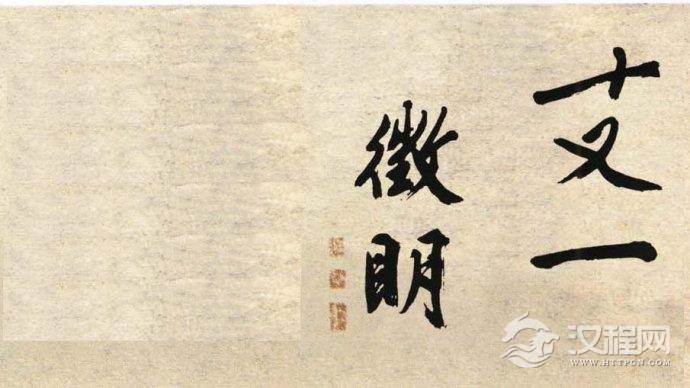 十又一
徵明
汉程网
WWW.HTTPCN.COM